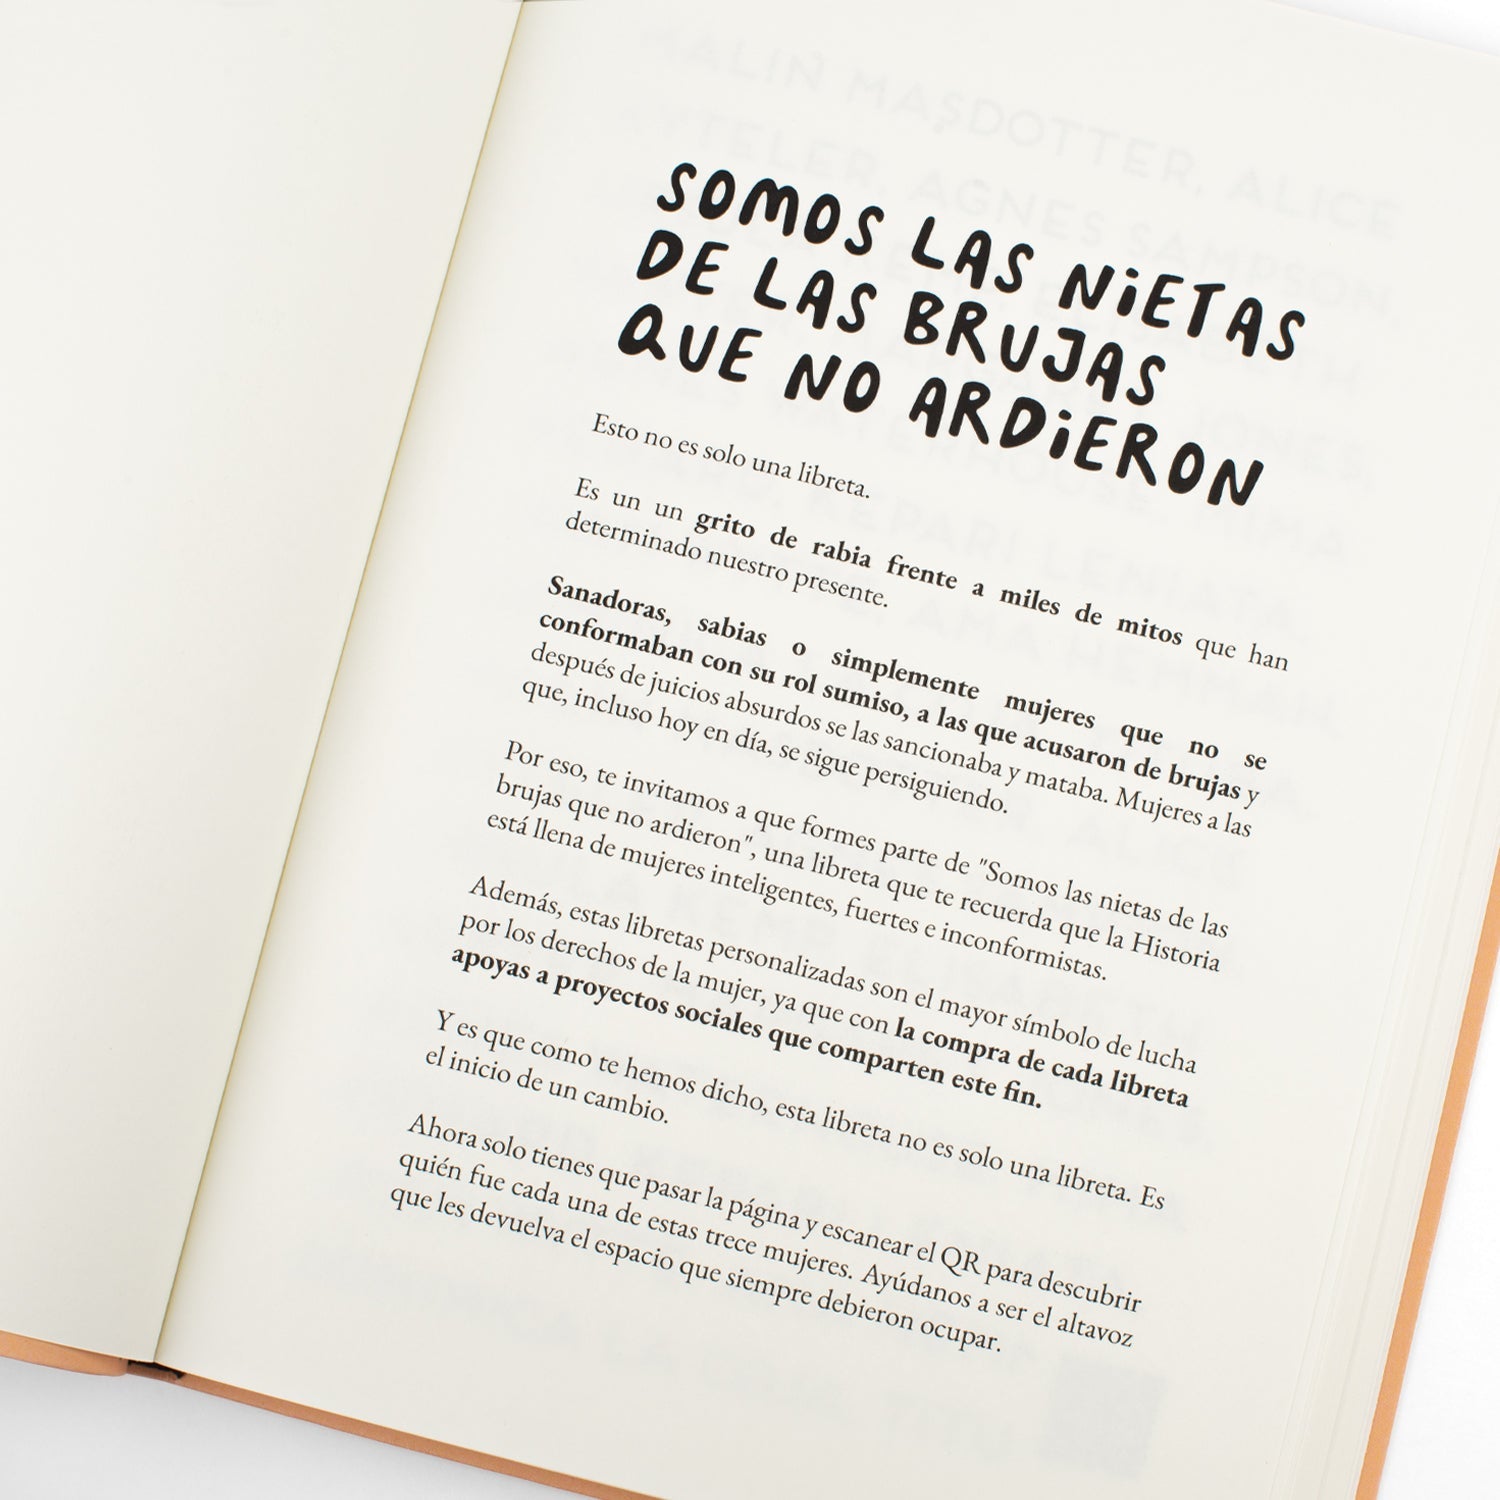 SOMOS LAS NIETAS
DE LAS BRUJAS
QUE NO ARDIERON
Esto no es solo una libreta.
Es un un grito de rabia frente a miles de mitos que han
determinado nuestro presente.
Sanadoras, sabias o simplemente mujeres que no se
conformaban con su rol sumiso, a las que acusaron de brujas y
después de juicios absurdos se las sancionaba y mataba. Mujeres a las
que, incluso hoy en día, se sigue persiguiendo.
Por eso, te invitamos a que formes parte de "Somos las nietas de las
brujas que no ardieron", una libreta que te recuerda que la Historia
está llena de mujeres inteligentes, fuertes e inconformistas.
Además, estas libretas personalizadas son el mayor símbolo de lucha
por los derechos de la mujer, ya que con la compra de cada libreta
apoyas a proyectos sociales que comparten este fin.
Y es que como te hemos dicho, esta libreta no es solo una libreta. Es
el inicio de un cambio.
Ahora solo tienes que pasar la página y escanear el QR para descubrir
quién fue cada una de estas trece mujeres. Ayúdanos a ser el altavoz
que les devuelva el espacio que siempre debieron ocupar.